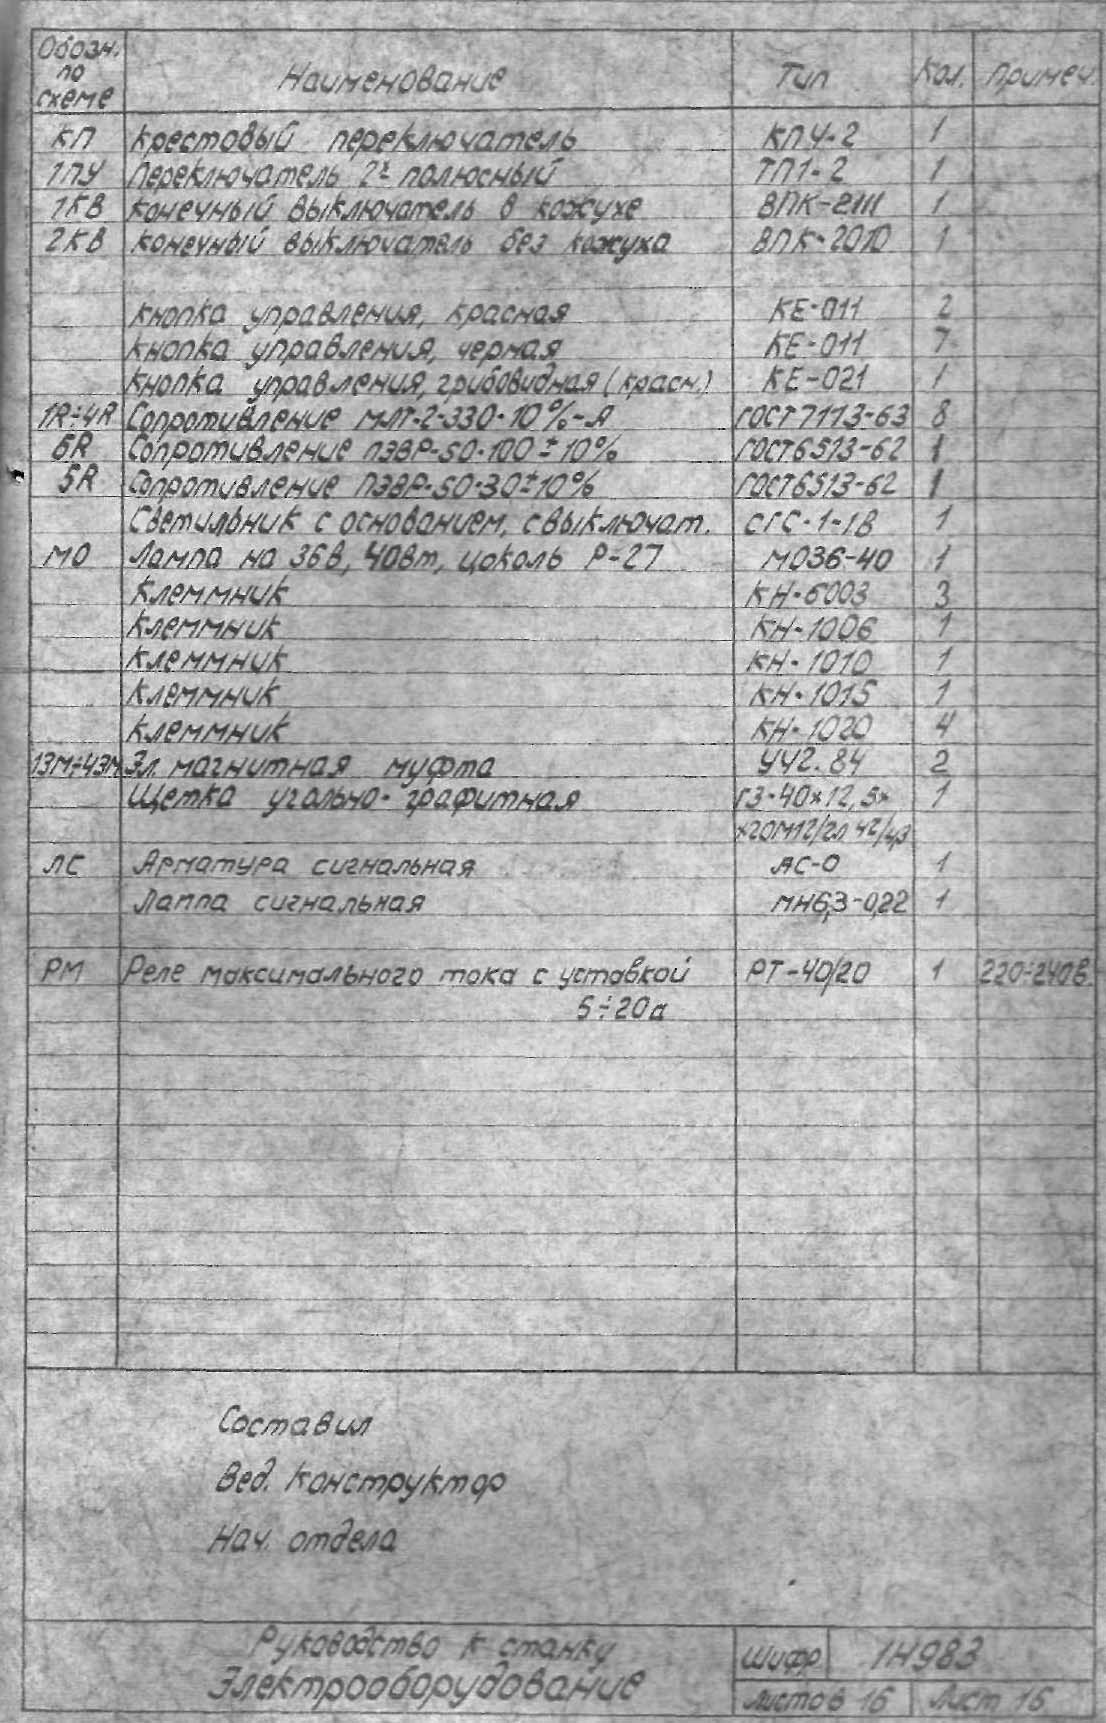 Обозн. по схеме Наименование Тип Кол. Примеч.
КП Крестовый переключатель КПУ-2 1
1ПУ Переключатель 2х полюсный ТП1-2 1
1КВ Конечный выключатель в кожухе ВПК-2111 1
2КВ Конечный выключатель без кожуха ВПК-2010 1
Кнопка управления, красная КЕ-011 2
Кнопка управления, черная КЕ-011 7
Кнопка управления, грибовидная (красн.) КЕ-021 1
1R÷4R Сопротивление МЛТ-2-330-10%-А ГОСТ7113-63 8
6R Сопротивление ПЭВР-50-100±10% ГОСТ6513-62 1
5R Сопротивление ПЭВР-50-30±10% ГОСТ6513-62 1
Светильник с основанием, с выключат. СГС-1-1В 1
МО Лампа на 36в, 40вт, цоколь Р-27 МО36-40 1
Клеммник КН-6003 3
Клеммник КН-1006 1
Клеммник КН-1010 1
Клеммник КН-1015 1
Клеммник КН-1020 4
1ЭМ÷4ЭМ Эл. магнитная муфта УЧ2.84 2
Щетка угольно-графитная Г3-40×12,5× 1
×20М12/2л 42/43
ЛС Арматура сигнальная АС-0 1
Лампа сигнальная МН6,3-0,22 1
РМ Реле максимального тока с уставкой РТ-40/20 1 220÷240в.
5÷20а
Составил
Вед. конструктор
Нач. отдела
Руководство к станку
Электрооборудование
Шифр 1Н983
Листов 16 Лист 16